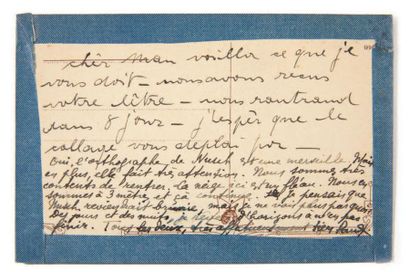 chér Man voilla se que je
vous doit — nousavons resus
votre lètre — nous rantrand
dans 8 jour — j'espèr que le
collage vous deplai por —
Oui, l'orthographe de Nusch est une merveille. Mais
en plus, elle fait très attention. Nous sommes très
contents de rentrer, la neige ici est un fléau. Nous en
sommes à 3 mètres et ça continue. Je pensais que
Nusch reviendrait bronzée, mais je ne vois pas
Des jours et des nuits, d'horizons à n'en pas
finir. Tous les deux, très affectueusement